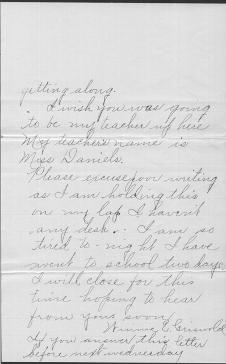 getting along.
I wish you was going
to be my teacher up here
My teachers name is
Miss Daniels.
Please excuse poor writing
as I am holding this
on my lap I haven't
any desk. I am so
tired to-night I have
went to school two days
I will close for this
time hoping to hear
from you soon,
Winnie E. Griswold
If you answer this letter
before next wednesday